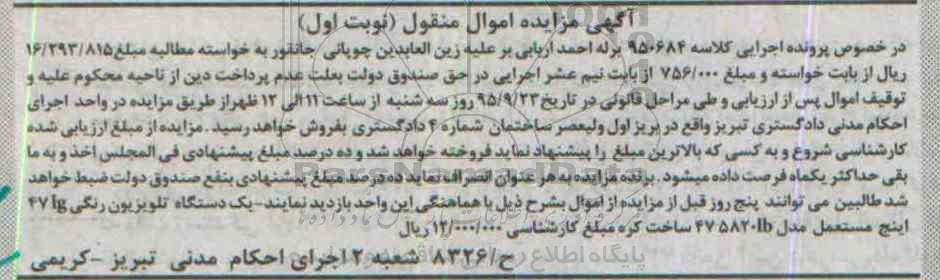 آگهی مزایده اموال منقول (نوبت اول)
در خصوص پرونده اجرایی کلاسه ۹۵۰۶۸۴ برله احمد اربابی بر علیه زین العابدین چوپانی جانقور به خواسته مطالبه مبلغ۱۶/۲۹۳/۸۱۵
ریال از بابت خواسته و مبلغ ۷۵۶/۰۰۰ از بابت نیم عشر اجرایی در حق صندوق دولت بعلت عدم پرداخت دین از ناحیه محکوم علیه و
توقیف اموال پس از ارزیابی و طی مراحل قانونی در تاریخ ۹۵/۹/۲۳ روز سه شنبه از ساعت ۱۱الی ۱۲ ظهراز طریق مزایده در واحد اجرای
احکام مدنی دادگستری تبریز واقع در پریز اول ولیعصر ساختمان شماره ۴ دادگستری بفروش خواهد رسید . مزایده از مبلغ ارزیابی شده
کارشناسی شروع و به کسی که بالاترین مبلغ را پیشنهاد نماید فروخته خواهد شد و ده درصد مبلغ پیشنهادی فی المجلس اخذ و به ما
بقی حداکثر یکماه فرصت داده میشود . برنده مزایده به هر عنوان انصراف نماید ده درصد مبلغ پیشنهادی بنفع صندوق دولت ضبط خواهد
شد طالبین می توانند پنج روز قبل از مزایده از اموال بشرح ذیل با هماهنگی این واحد بازدید نمایند-یک دستگاه تلویزیون رنگی lg ۴۷
اینچ مستعمل مدل ۴۷۵۸۲۰lb ساخت کره مبلغ کارشناسی ۱۲/۰۰۰/۰۰۰ ریال
ح/۸۳۲۶ شعبه ۲ اجرای احکام مدنی تبریز -کریمی